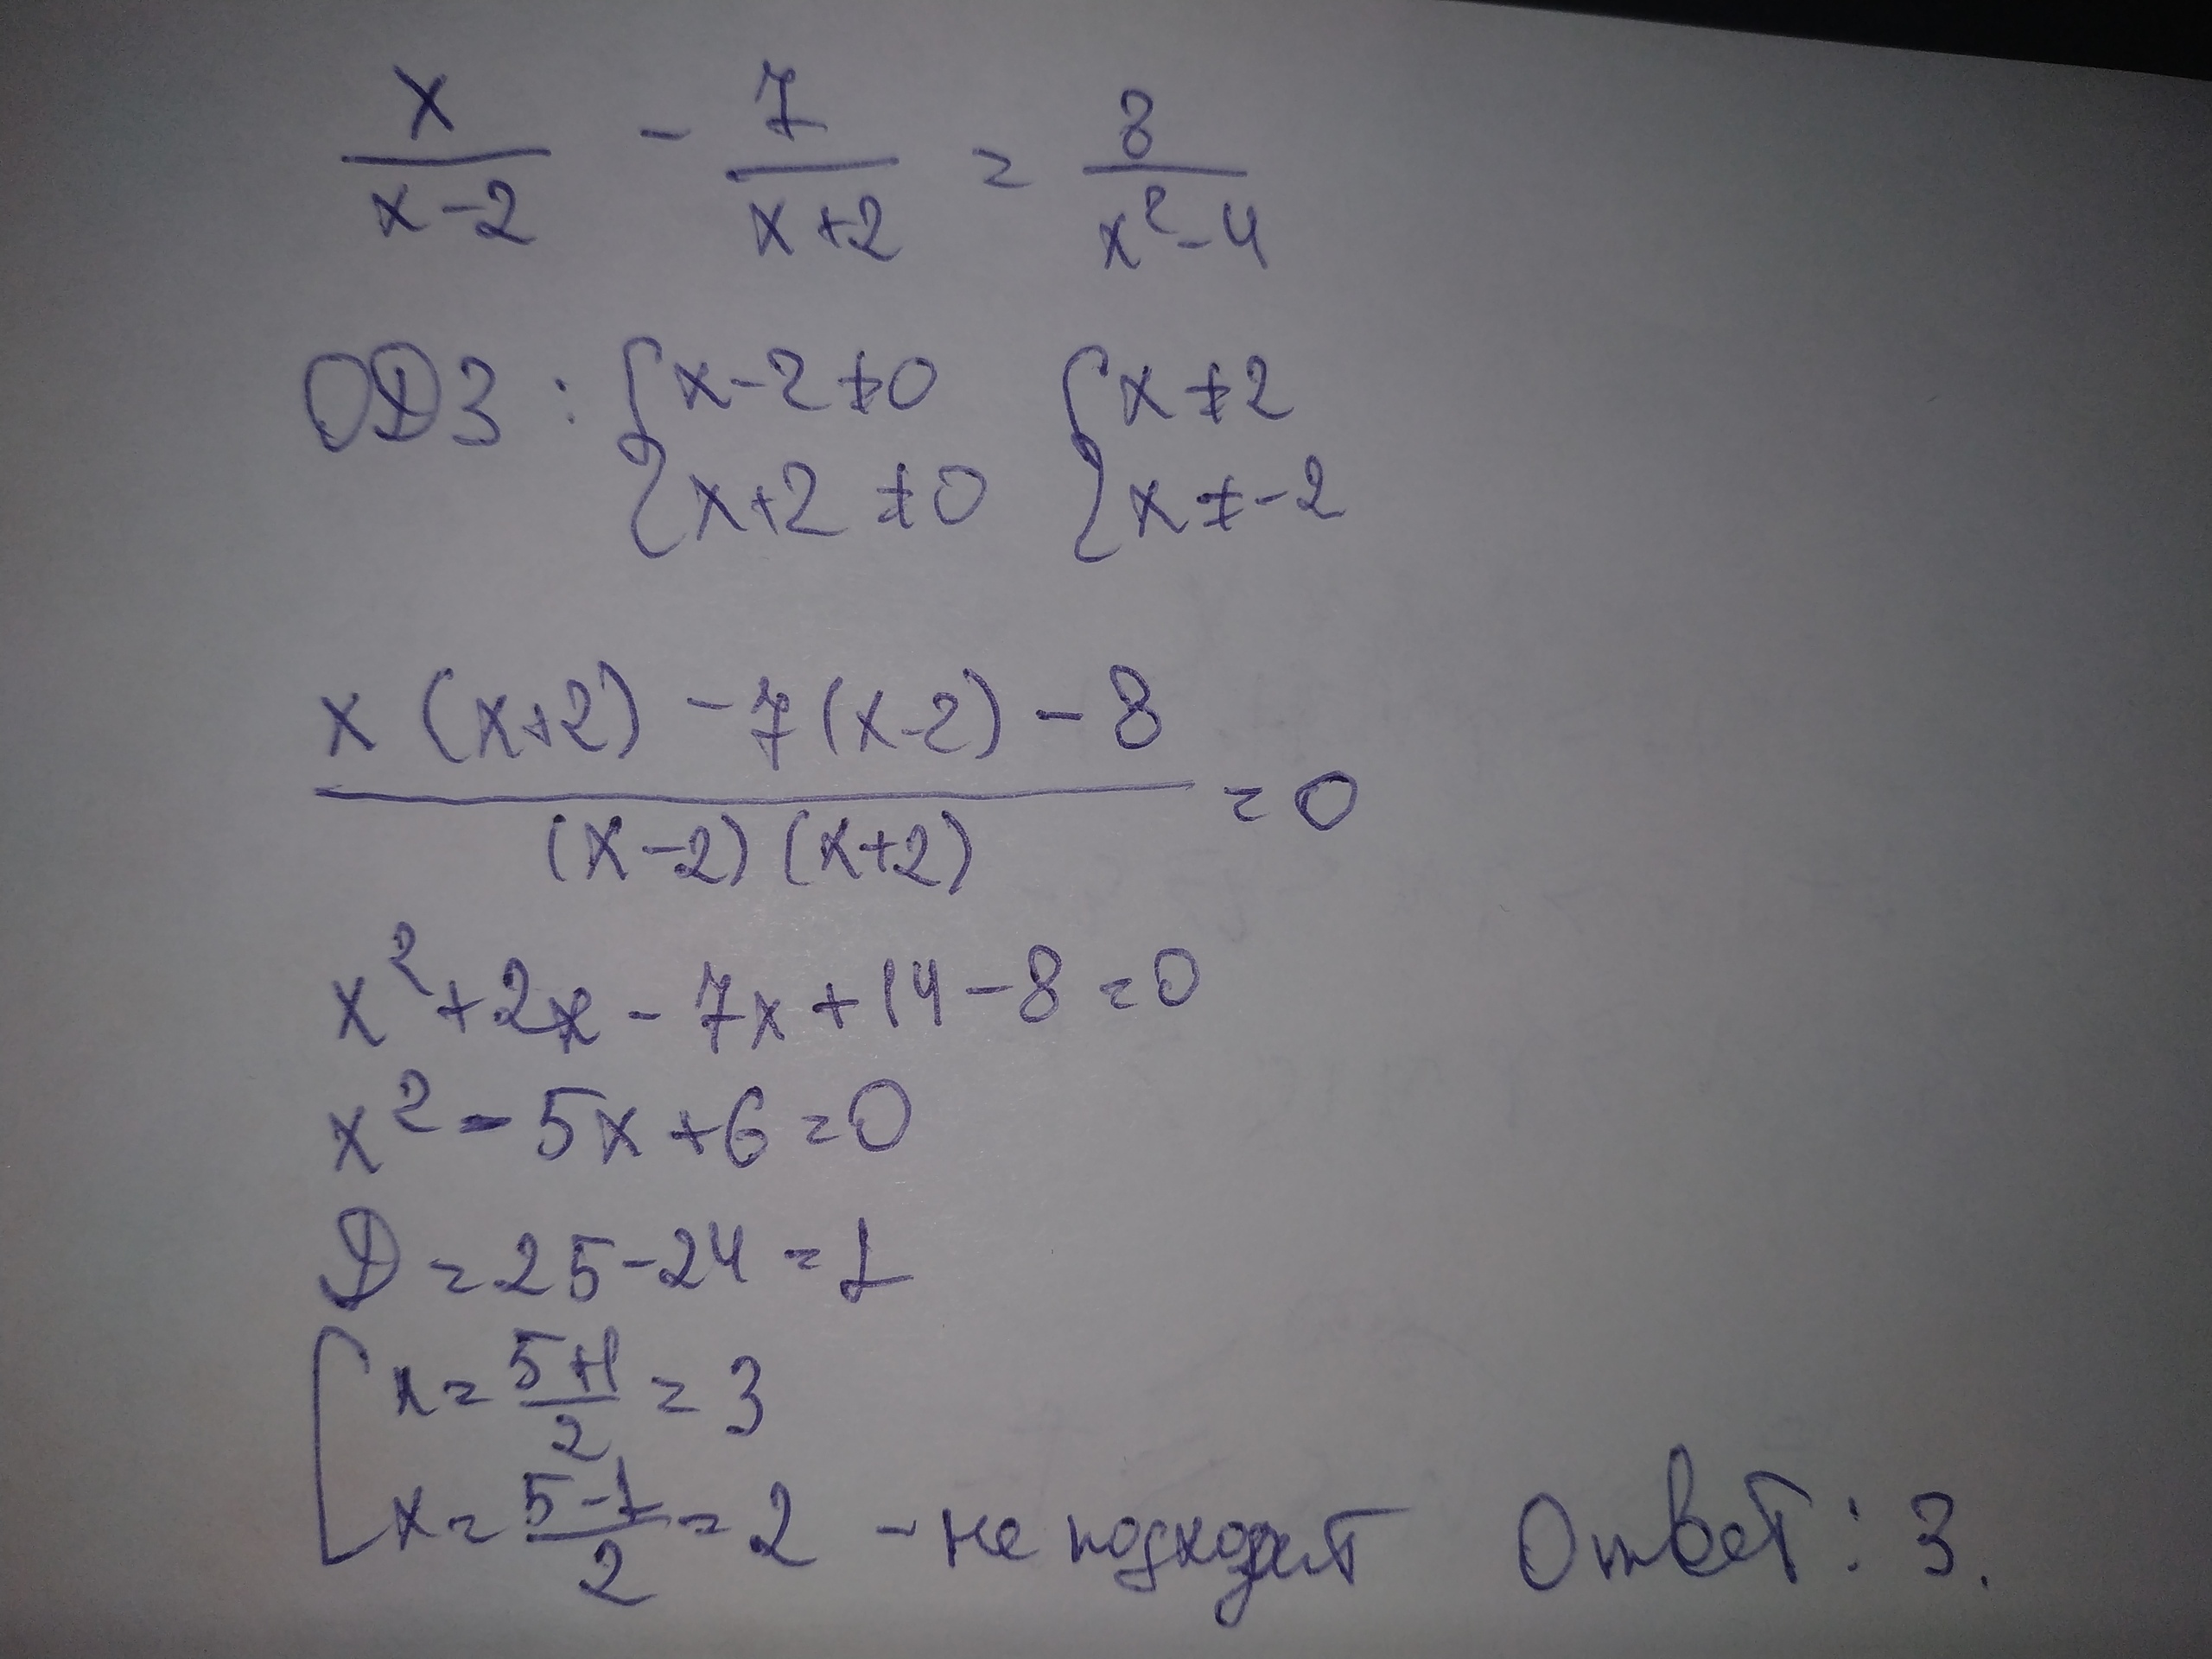 x/(x-2) - 7/(x+2) = 8/(x²-4)
ОДЗ: { x-2≠0 { x≠2
{ x+2≠0 { x≠-2
(x(x+2) - 7(x-2) - 8)/((x-2)(x+2)) = 0
x²+2x-7x+14-8=0
x²-5x+6=0
D=25-24=1
[ x=(5+1)/2=3
[ x=(5-1)/2=2 - не подходит Ответ: 3.